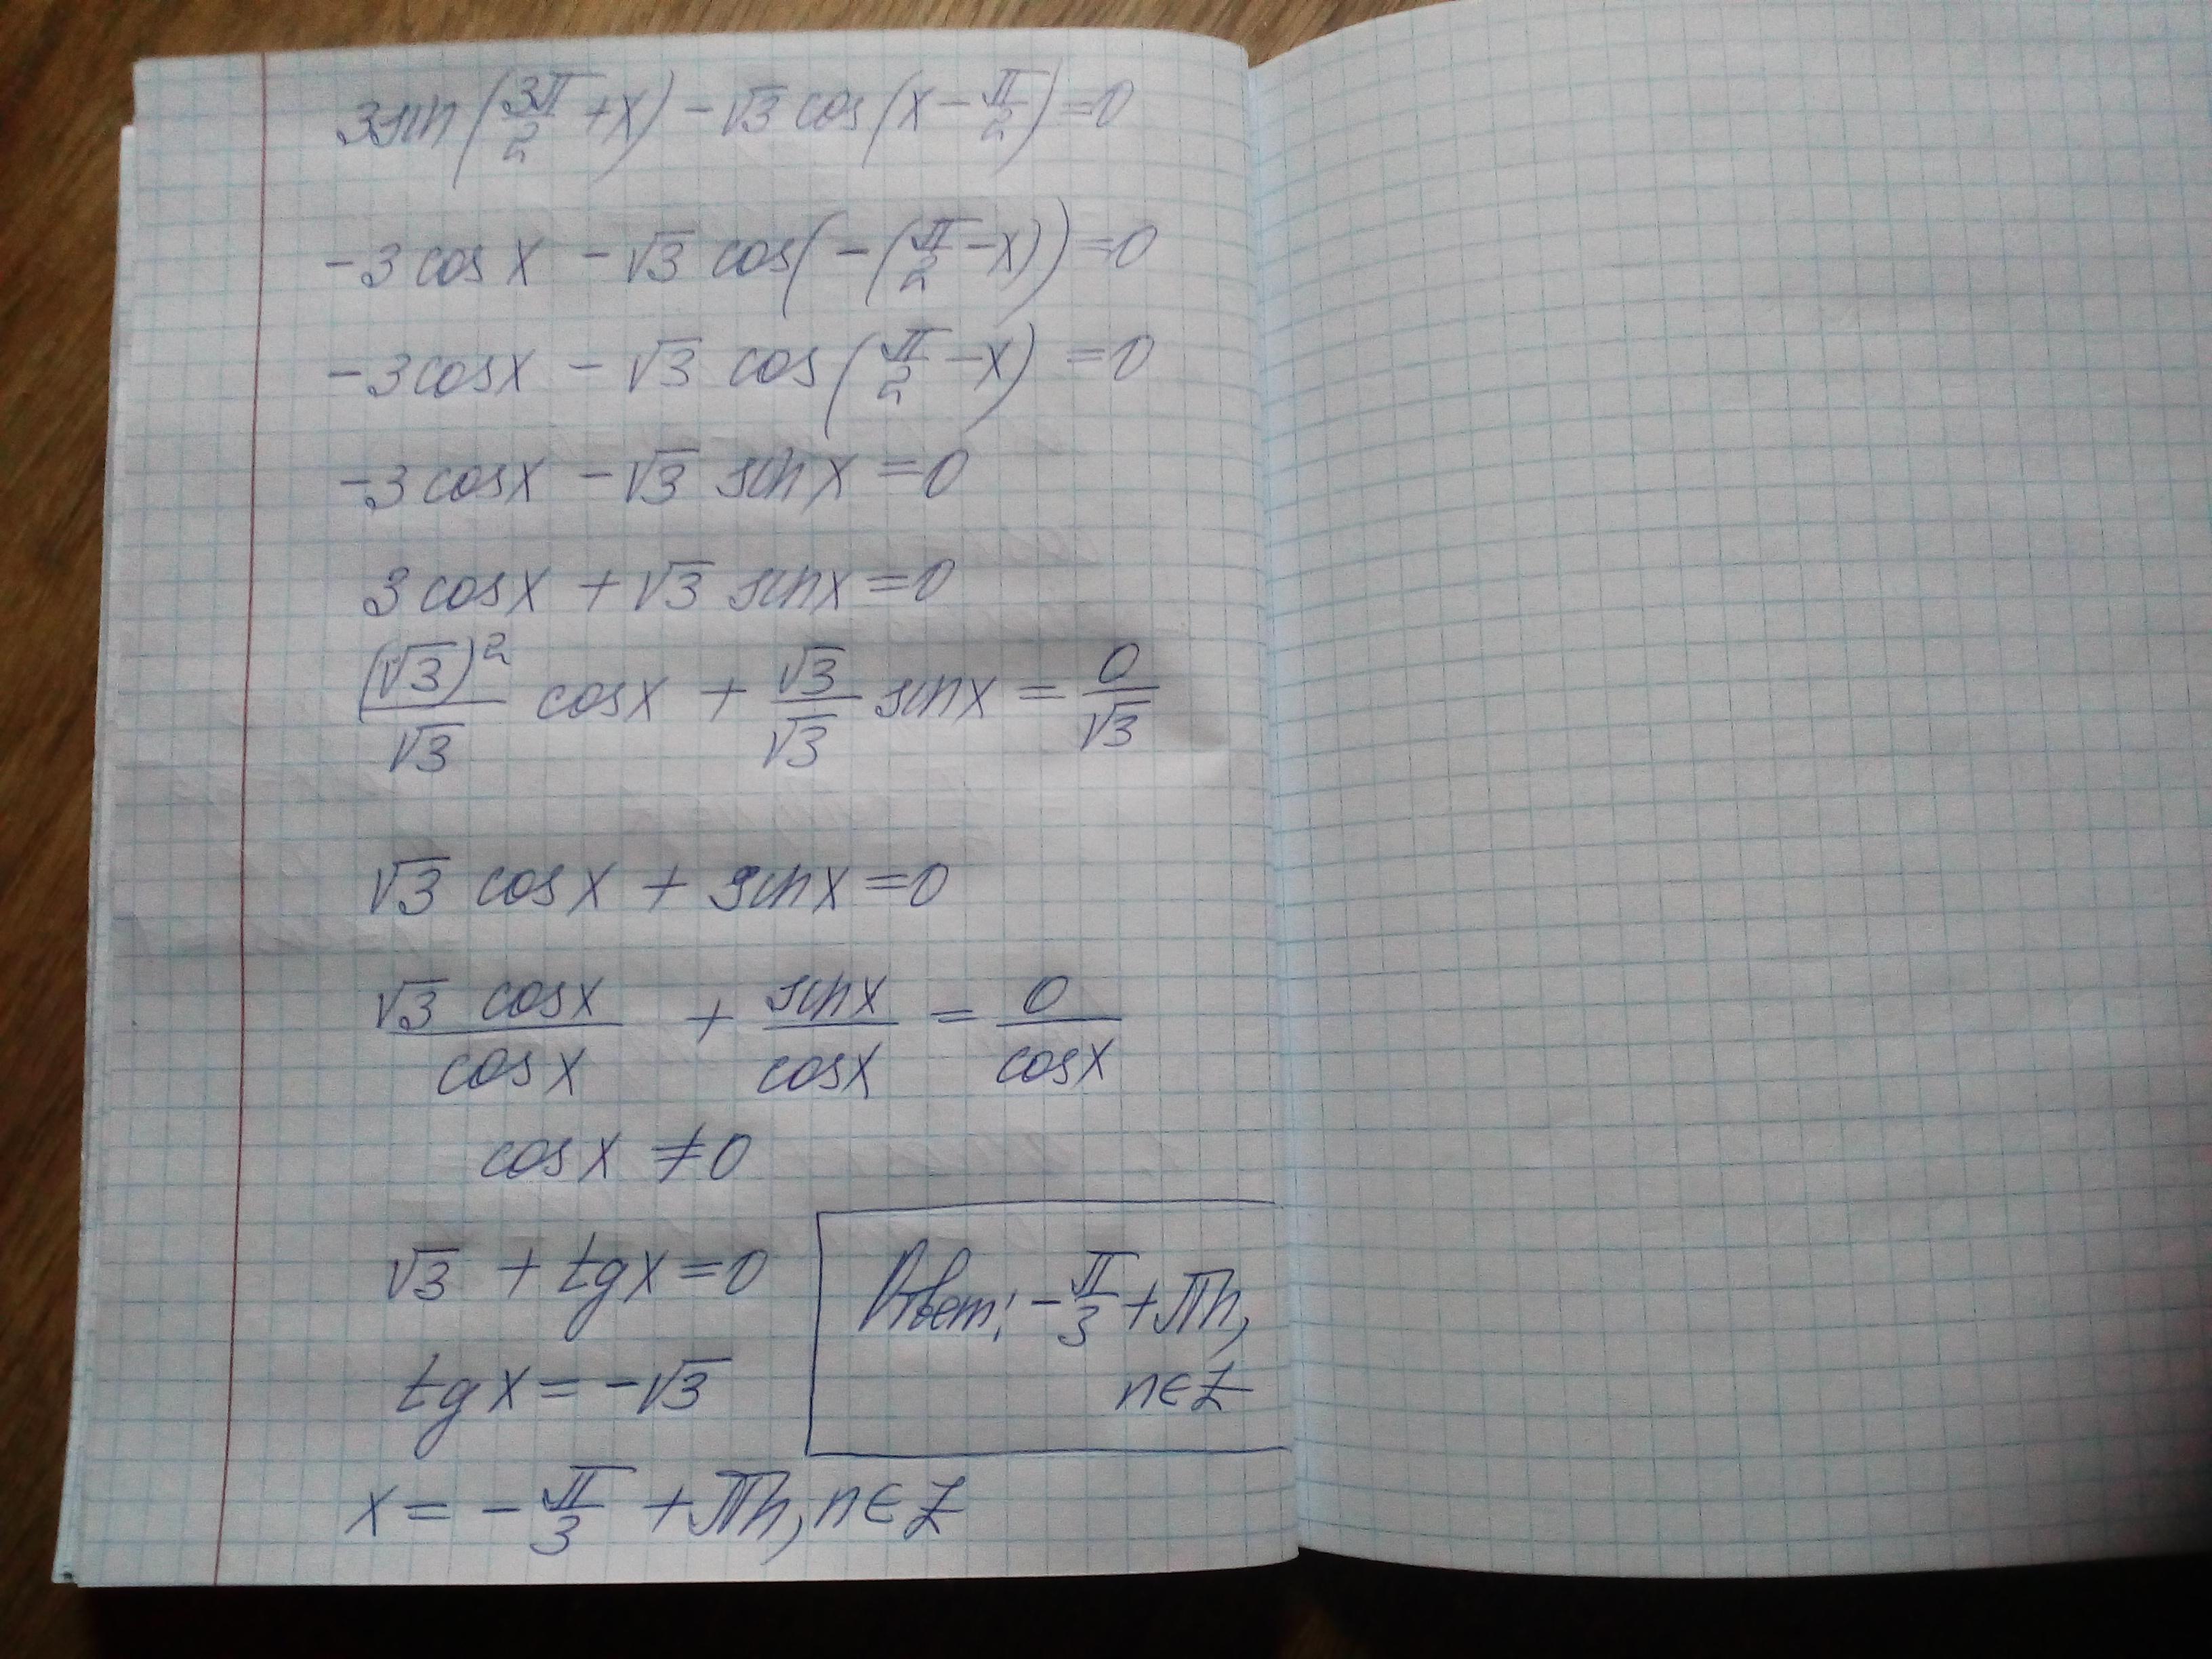 3sin(3π/2 + x) - √3 cos(x - π/2) = 0
-3 cos x - √3 cos(-(π/2 - x)) = 0
-3cosx - √3 cos(π/2 - x) = 0
-3 cosx - √3 sin x = 0
3 cosx + √3 sinx = 0
(√3)²/√3 cosx + √3/√3 sinx = 0/√3
√3 cosx + sinx = 0
√3 cosx/cosx + sinx/cosx = 0/cosx
cosx ≠ 0
√3 + tgx = 0
tgx = -√3
x = -π/3 + πn, n∈Z
Ответ: -π/3 + πn,
n∈Z